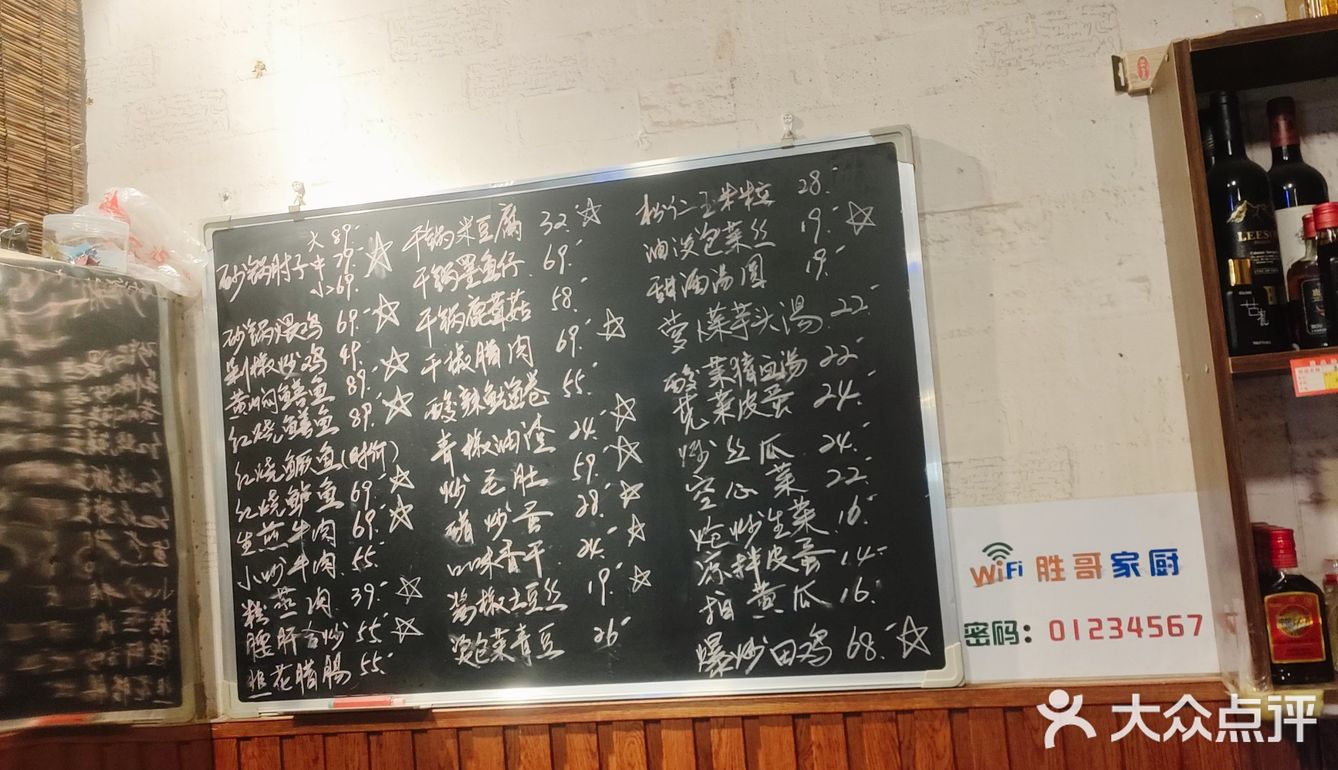 大 89.
砂锅肘子 中 79. ☆
小 69.
砂锅煨鸡 69. ☆
剁椒炒鸡 49.
黄焖鳝鱼 89. ☆
红烧鳝鱼 89. ☆
红烧鳜鱼(时价)
红烧鲈鱼 69. ☆
生煎牛肉 69. ☆
小炒牛肉 55.
粉蒸肉 39. ☆
腰肝合炒 55. ☆
韭花腊肠 55.
干锅米豆腐 32. ☆
干锅墨鱼仔 69.
干锅鹿茸菇 58.
干椒腊肉 69. ☆
酸辣鱿鱼卷 55.
青椒油渣 24. ☆
炒毛肚 59. ☆
炒蛋 28. ☆
口味香干 24. ☆
酱椒土豆丝 19. ☆
泡菜青豆 26
松仁玉米粒 28.
油淡泡菜丝 19. ☆
甜酒汤圆 19.
萝卜菜芋头汤 22.
酸菜猪血汤 22
苋菜皮蛋 24.
炒丝瓜 24.
空心菜 22.
炝炒生菜 16.
凉拌皮蛋 14.
拍黄瓜 16.
爆炒田鸡 68. ☆
WiFi 胜哥家厨
密码：01234567
LEESO
大众点评